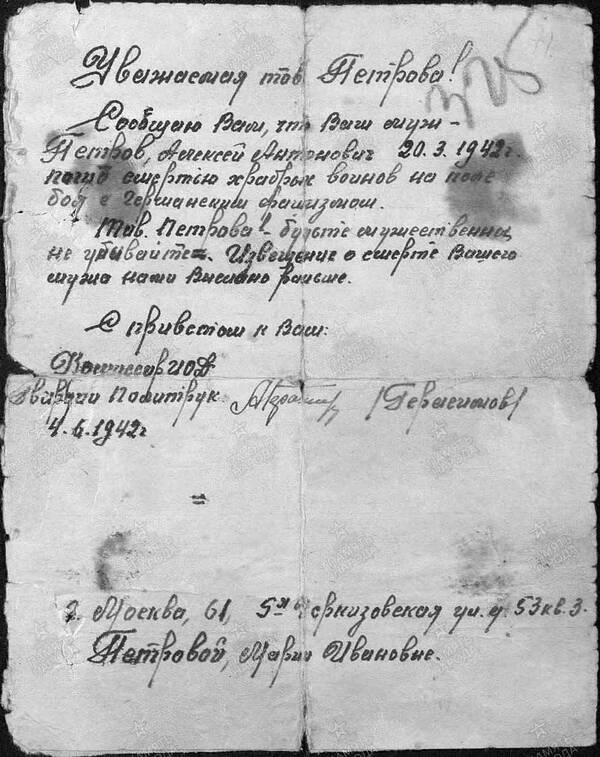 Уважаемая тов Петрова!
Сообщаю Вам, что Ваш муж -
Петров, Алексей Антонович 20.3.1942г.
погиб смертью храбрых воинов на поле
боя с Германским фашизмом.
Тов. Петрова! - будьте мужественны,
не убывайте. Извещение о смерте Вашего
мужа нами Выслано раньше.
С приветом к Вам:
Комиссар
Гвардии Политрук /Герасимов/
4.6.1942г
=
г. Москва, 61, 5я ул. д. 53 кв. 3.
Петровой, Марии Ивановне.